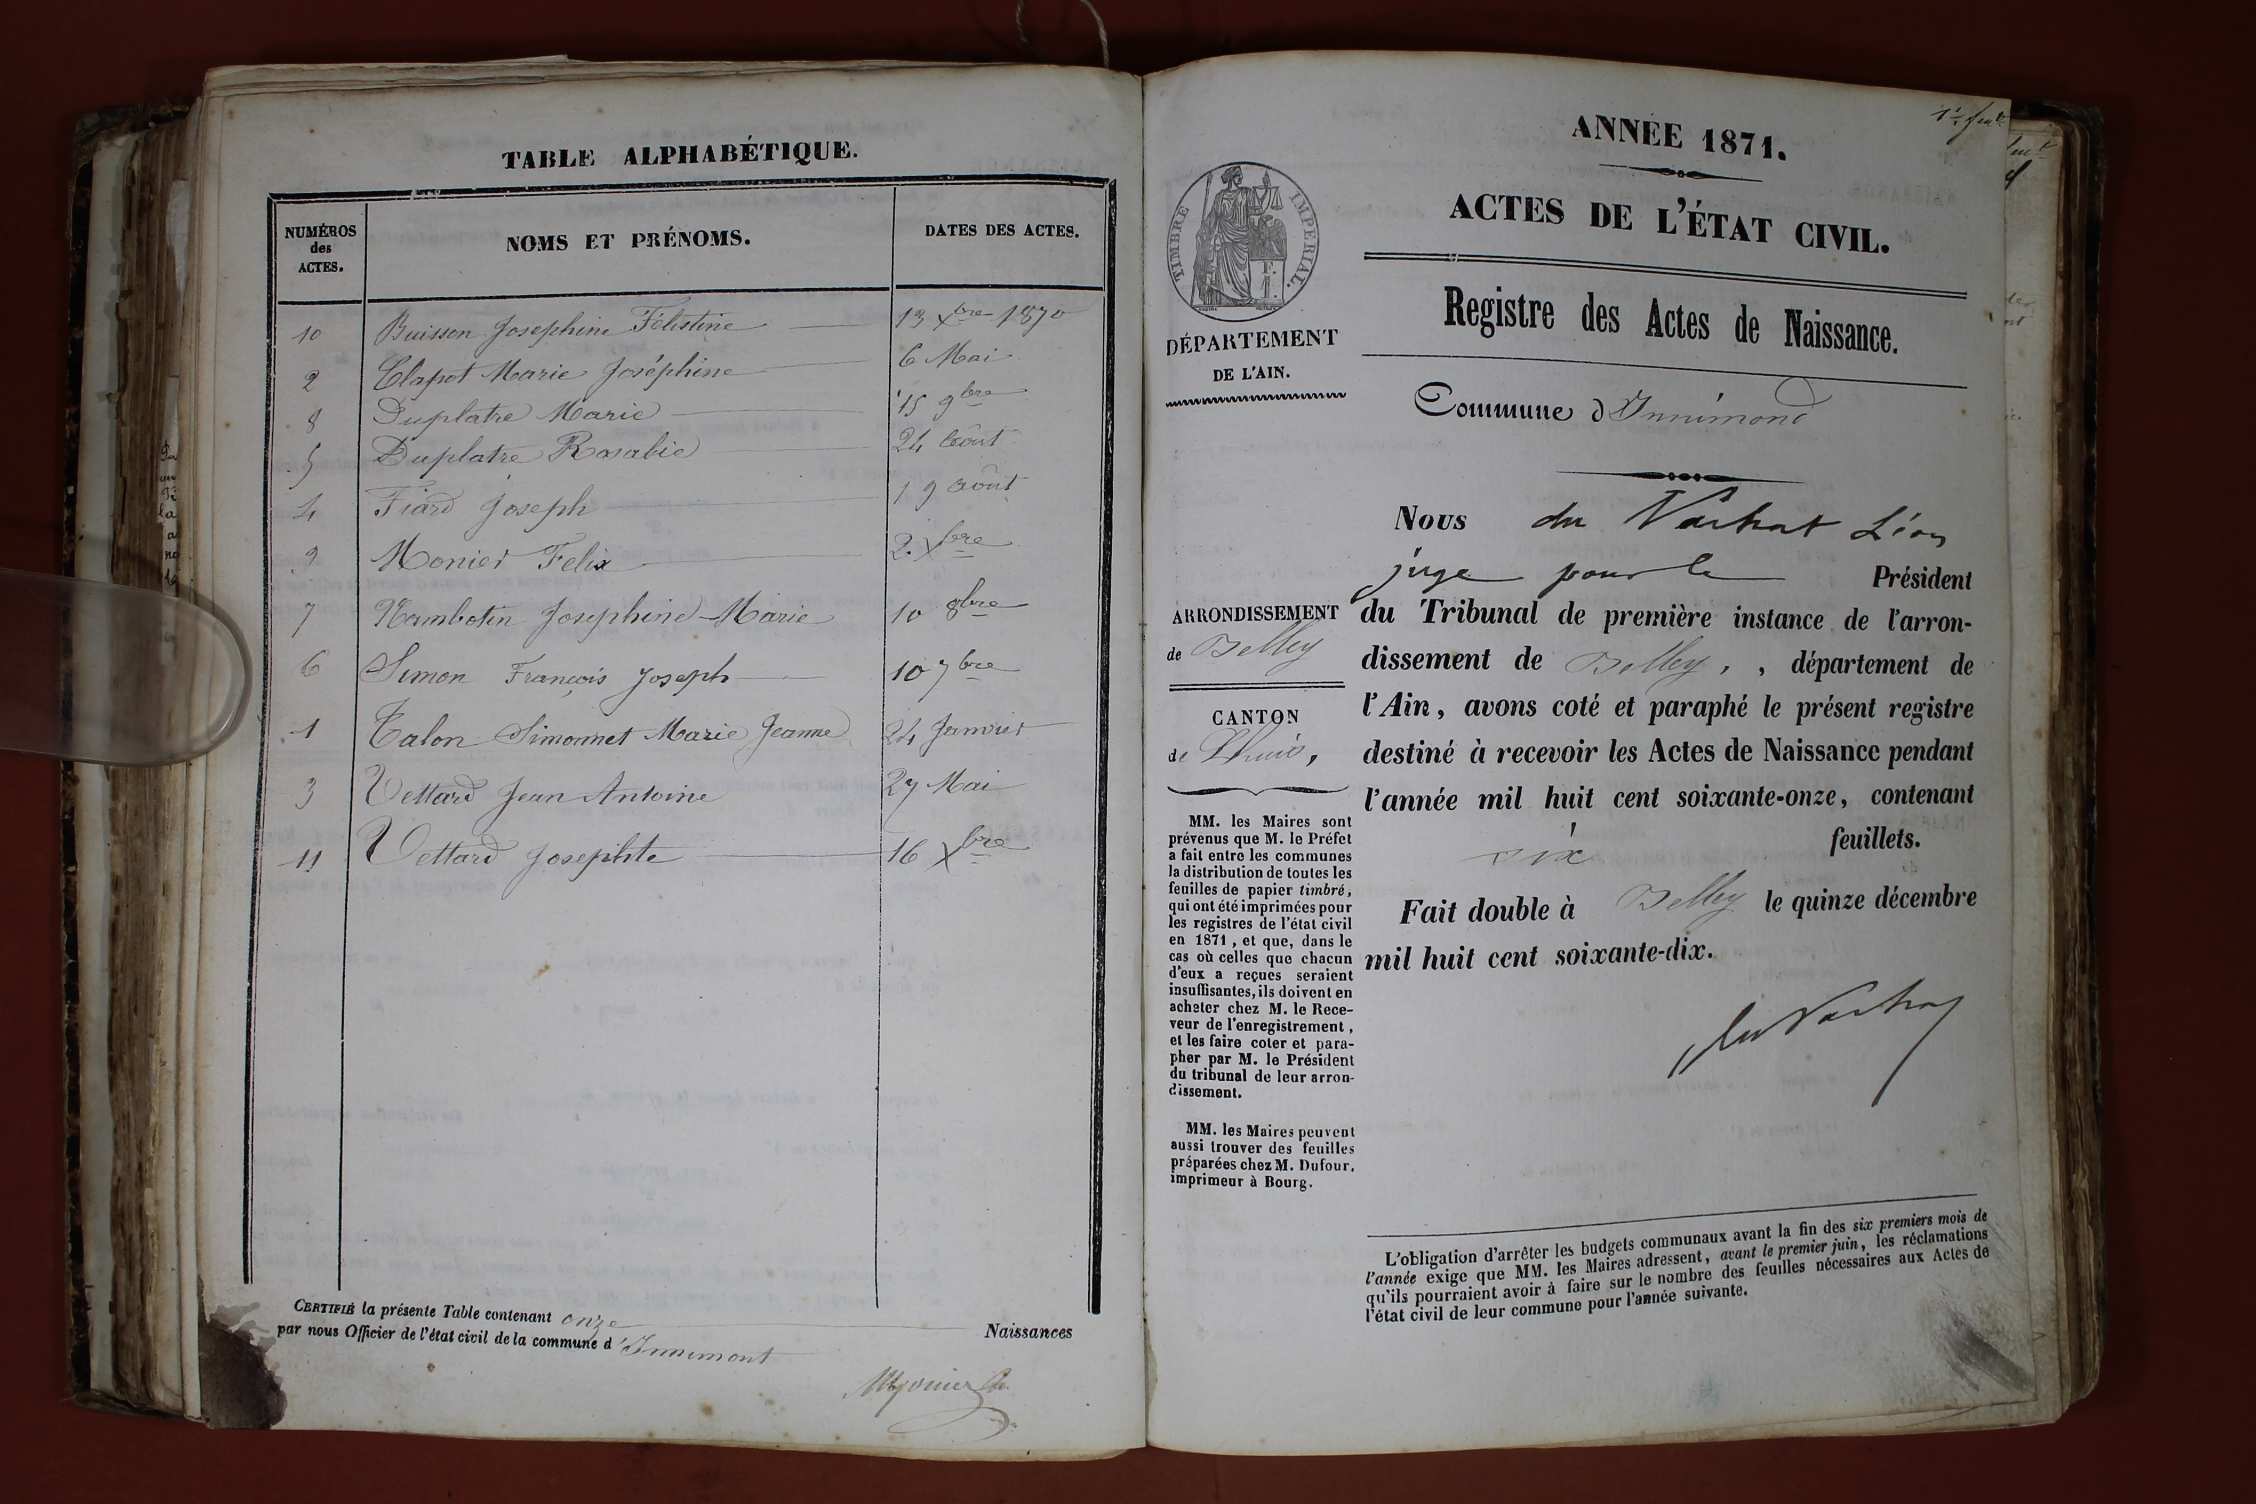 TABLE ALPHABÉTIQUE.
NUMÉROS des ACTES.
NOMS ET PRÉNOMS.
DATES DES ACTES.
10 Buisson Josephine Félistine 13 Xbre 1870
2 Clapot Marie Joséphine 6 Mai
8 Duplatre Marie 15 9bre
5 Duplatre Rosalie 24 août
4 Fiard Joseph 19 août
9 Monier Felix 2 Xbre
7 Nambotin Josephine Marie 10 8bre
6 Simon François Joseph 10 7bre
1 Talon Simonnet Marie Jeanne 24 Janvier
3 Vettard Jean Antoine 27 Mai
11 Vettard Josephte 16 Xbre
CERTIFIÉ la présente Table contenant onze Naissances
par nous Officier de l'état civil de la commune d'Innimont
1er feuil
ANNÉE 1871.
ACTES DE L'ÉTAT CIVIL.
TIMBRE IMPÉRIAL.
Registre des Actes de Naissance.
DÉPARTEMENT
DE L'AIN.
Commune d'Innimond
Nous du Vachat Léon
juge pour le Président
du Tribunal de première instance de l'arron-
dissement de Belley, , département de
l'Ain, avons coté et paraphé le présent registre
destiné à recevoir les Actes de Naissance pendant
l'année mil huit cent soixante-onze, contenant
six feuillets.
Fait double à Belley le quinze décembre
mil huit cent soixante-dix.
du Vachat
ARRONDISSEMENT
de Belley
CANTON
de Lhuis,
MM. les Maires sont
prévenus que M. le Préfet
a fait entre les communes
la distribution de toutes les
feuilles de papier timbré,
qui ont été imprimées pour
les registres de l'état civil
en 1871, et que, dans le
cas où celles que chacun
d'eux a reçues seraient
insuffisantes, ils doivent en
acheter chez M. le Rece-
veur de l'enregistrement,
et les faire coter et para-
pher par M. le Président
du tribunal de leur arron-
dissement.
MM. les Maires peuvent
aussi trouver des feuilles
préparées chez M. Dufour,
imprimeur à Bourg.
L'obligation d'arrêter les budgets communaux avant la fin des six premiers mois de
l'année exige que MM. les Maires adressent, avant le premier juin, les réclamations
qu'ils pourraient avoir à faire sur le nombre des feuilles nécessaires aux Actes de
l'état civil de leur commune pour l'année suivante.